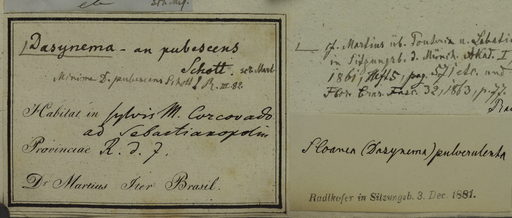 Dasynema - an pubescens
Schott.
Minime D. pubescens Schott! R. III. 82.
Habitat in sylvis M. Corcovado
ad Sebastianopolin
Provinciae R. d. J.
Dr Martius Iter Brasil.
cf. Martius üb. Toutvia u.
in Sitzungsb. d. Münch. Akad. I
1861, Heft 5, pag. 571 etc. und
Flor. Bras. Fasc. 32, 1863, p. 177.
Sloanea (Dasynema) pulverulenta
Radlkofer in Sitzungsb. 3. Dec. 1881.